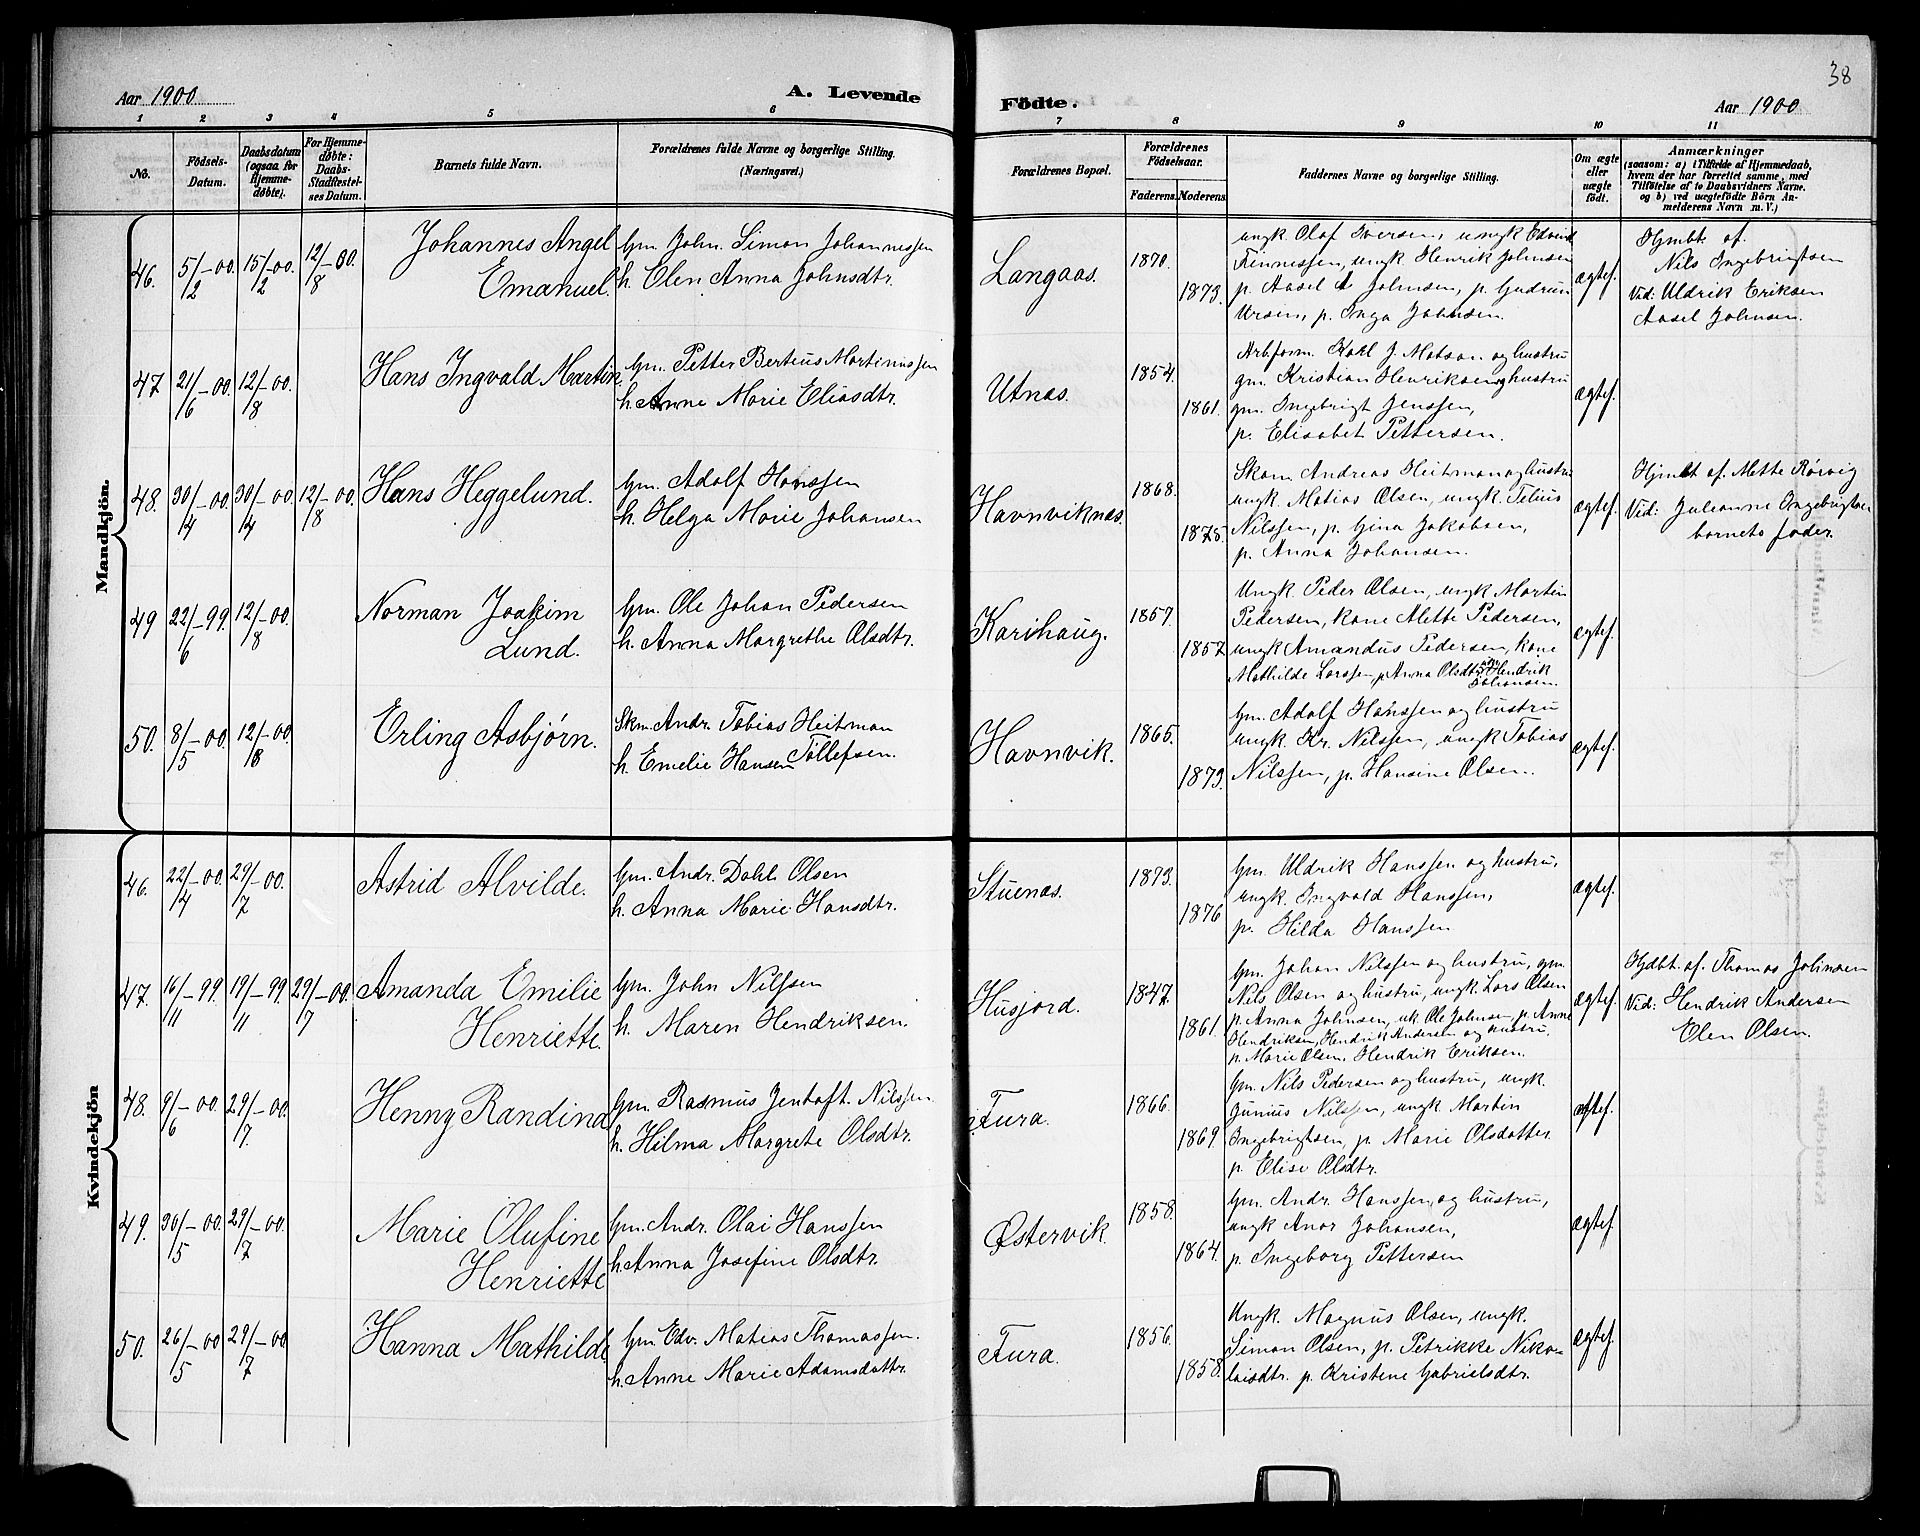 38
Aar 1900.
A. Levende
Födte.
Aar 1900
1 2 3 4 5 6 7 8 9 10 11
No.
Födsels-
Datum.
Daabsdatum
(ogsaa for
Hjemme-
döbte).
For Hjemme-
döbte:
Daabs-
Stadfæstel-
ses Datum.
Barnets fulde Navn.
Forældrenes fulde Navne og borgerlige Stilling.
(Næringsvei.)
Forældrenes Bopæl.
Forældrenes
Födselsaar.
Faderens.
Moderens.
Faddernes Navne og borgerlige Stilling.
Om ægte
eller
uægte
födt.
Anmærkninger
(saasom: a) i Tilfælde af Hjemmedaab,
hvem der har forrettet samme, med
Tilföielse af to Daabsvidners Navne.
og b) ved uægtefödte Börn An-
melderens Navn m. V.)
Mandkjön.
46. 5/2-00. 15/2-00. 12/8-00.
Johannes Angel
Emanuel.
Gm. John. Simon Johannessen
h. Elen Anna Johnsdtr.
Langaas.
1870.
1873.
ungk. Olaf Iversen, ungk Edvind
Tinnessen, ungk Henrik Johnsen
p. Aasel Johnsen, p. Gudrun
Ursen, p. Inga Johnsen.
ægtef.
Hjmbt. af.
Nils Ingebrigtsen
Vid: Uldrik Eriksen
Aasel Johnsen.
47 21/6-00. 12/8-00.
Hans Ingvald Martin.
Gm. Petter Berteus Martinussen
h. Anne Marie Eliasdtr.
Utnæs.
1854.
1861.
Arb.form. Kahl J. Matson og hustru
gm. Kristian Henriksen og hustru
gm. Ingebrigt Jenssen,
p. Elisabet Pettersen.
ægtef.
48. 30/4-00. 30/4-00. 12/8-00.
Hans Heggelund.
Gm. Adolf Hanssen
h. Helga Marie Johansen
Havnviknæs.
1868.
1875.
Skom Andreas Heitman og hustru
ungk. Matias Olsen, ungk. Telius
Nilssen, p. Gina Jakobsen,
p. Anna Johansen.
ægtef.
Hjmbt af. Mette Rørvig
Vid: Julianne Ingebrigtsen
barnets fader.
49 22/6-99. 12/8-00.
Norman Joakim
Lund.
Gm. Ole Johan Pedersen
h. Anna Margrethe Olsdtr.
Karihaug.
1857.
1857
Ungk Peder Olsen, ungk Martin
Pedersen, kone Mette Pedersen,
ungk Amandus Pedersen, kone
Mathilde Larssen, p. Anna Olsdtr, Hendrik
Johansen.
ægtef.
50. 8/5-00. 12/8-00.
Erling Asbjørn.
Skm. Andr. Tobias Heitman
h. Emelie Hansen Tollefsen.
Havnvik.
1865.
1873.
Gm. Adolf Hanssen og hustru
ungk. Kr. Nilssen, ungk Tobias
Nilssen, p. Hansine Olsen.
ægtef.
Kvindekjön
46. 22/4-00. 29/7-00.
Astrid Alvilde.
Gm. Andr. Dahl Olsen
h. Anna Marie Hansdtr.
Stuenæs.
1873.
1876
Gm. Uldrik Hanssen og hustru,
ungk. Ingvald Hanssen,
p. Hilda Hanssen
ægtef.
47. 16/11-99. 19/11-99 29/7-00.
Amanda Emilie
Henriette.
Gm. John Nilssen
h. Maren Hendriksen.
Husjord.
1847.
1861.
Gm. Johan Nilssen og hustru, gm.
Nils Olsen og hustru, ungk. Lars Olsen
p. Anna Johnsen, uk Ole Johnsen, p. Anne
Hendriksen, Hendrik Andersen og hustru,
p. Marie Olsen, Hendrik Eriksen.
ægtef.
Hjdbt. af. Thomas Johnsen
Vid: Hendrik Andersen
Elen Olsen.
48. 9/6-00. 29/7-00.
Henny Randina
Gm. Rasmus Jentoft. Nilssen
h. Hilma Margrete Olsdtr.
Fura.
1866.
1869.
Gm. Nils Pedersen og hustru, ungk.
Junius Nilssen, ungk. Martin
Ingebrigtsen, p. Marie Olsdatter
p. Elise Olsdtr.
ægtef.
49. 30/5-00. 29/7-00.
Marie Olufine
Henriette
Gm. Andr. Olai Hanssen
h. Anna Josefine Olsdtr.
Østervik.
1858.
1864.
Gm. Andr. Hanssen, og hustru,
ungk Anor Johansen,
p. Ingeborg Pettersen
ægtef.
50. 26/5-00 29/7-00
Hanna Mathilde
Gm. Edv. Matias Thomassen.
h. Anne Marie Adamsdattr.
Fura.
1856.
1858.
Ungk. Magnus Olsen, ungk.
Simon Olsen, p. Petrikke Niko-
laisdtr. p. Kristene Gabrielsdtr.
ægtef.